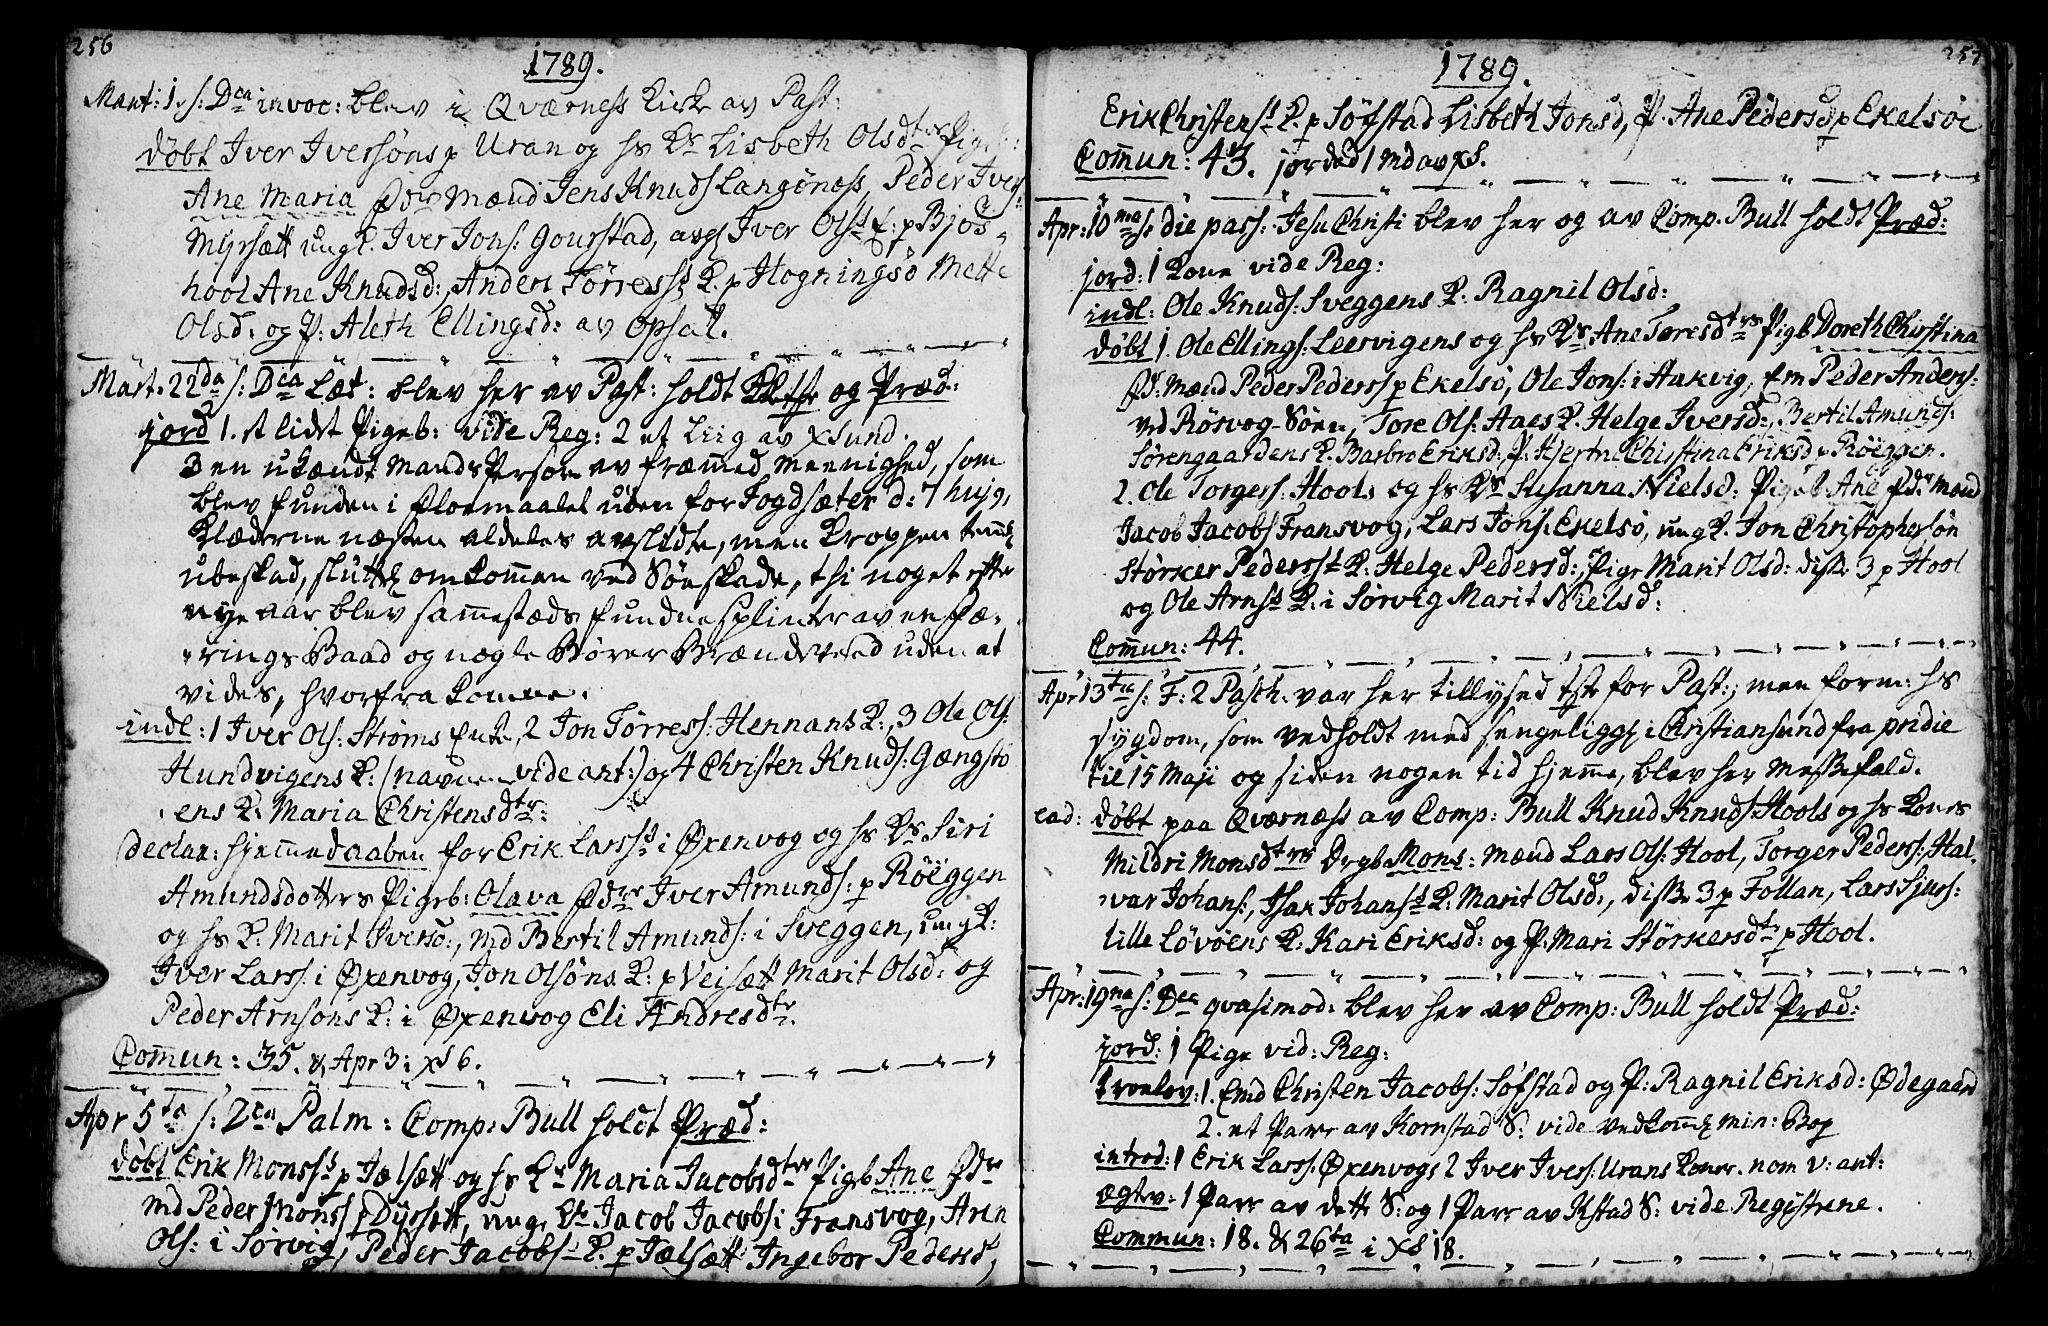 256
1789.
Mart: 1. s: Dca invoc: blev i Qværness Kirke av Past:
døbt Iver Iversøns p Uran og hs Ks Lisbeth Olsdtrs Pigeb:
Ane Maria Fdre Mænd Jens Knuds Langøness, Peder Ivers:
Myrsætt ung K. Iver Jons: Gourstad, Iver Olss K: p Bjos-
hool Ane Knudsd:, Anders Tørress K. p Hogningsø Mette
Olsd: og P. Aleth Ellingsd: av Opsal.
Mart. 22da s: Dca Læt: blev her av Past: holdt og Præd:
jord 1. et lidet Pigeb: vide Reg: 2 et Liig av XSund.
3 en ukændt Mands Person av fræmed Meenighed, som
blev funden i Floemaalet uden for Fogdsæter d: 7 hujg,
Klæderne næsten aldeles avslidte, men Kroppen
ubeskad, omkommen ved Søeskade, thi noget efter
nye aar blev sammestæds fundne splinter av en Fæ-
rings Baad og nogle Bører Brændeveed uden at
vides, hvorfra komne.
indl: 1 Iver Ols: Strøms Enke, 2 Jon Tørress: Hennans K:, 3 Ole Ols:
Hundvigens K: (navnene vide ant:) og 4 Christen Knuds: Gængstø
ens K: Maria Christensdtr:
declar: hjemmedaaben for Erik Larss i Øxenvog og hs Ks Siri
Amundsdotters Pigeb: Olava Fdre Iver Amunds: p Røeggen
og hs K: Marit Iversd:, md Bertil Amunds: i Sveggen, ung K:
Iver Larss: i Øxenvog, Jon Olsøns K: p Veisætt Marit Olsd: og
Peder Arnsøns K: i Øxenvog Eli Andresdtr.
Commun: 35. & Apr 3: XS 6.
Apr 5ta s: Dca Palm: Comp: Bull holdt Præd:
døbt Erik Monss p Jælsætt og hs Ks Maria Jacobsdtrs Pigeb Ane Fdre
md Peder Mons p Dyrsætt, ung K Jacob Jacobs i Fransvog, Aren
Ols: i Sørvig, Peder Jacobs K. p Jælsætt Ingebor Pedersd,
257
1789.
Erik Christens K. p Søfstad Lisbeth Jonsd, P. Ane Pedersd p Ekelsøe
Commun: 43. jordad 1 md av XS.
Apr: 10ma s: die pass: Jesu Christi blev her og av Comp. Bull holdt Præd:
jord: 1 Kone vide Reg:
indl: Ole Knuds: Sveggens K: Ragnil Olsd:
døbt 1. Ole Ellings: Leervigens og hs Ks Ane Toresdtrs Pigeb Doreth Christina
Fd: Mænd Peder Pederss p Ekelsø, Ole Jons: i Aukvig, Em Peder Anders:
ved Rosvog-Søen, Tore Ols: Haes K. Helge Iversd:, Bertil Amunds:
Sørengaardens K. Barbro Eriksd:, P. Hjertne Christina Eriksd p Røeggen.
2. Ole Torgers: Hools og hs Ks Susanna Nielsd: Pigeb Ane Fd: mænd
Jacob Jacobs Fransvog, Lars Jons: Ekelsø, ung K. Jon Christophersøn
Størker Pederss K: Helge Pedersd:, Pige Marit Olsd: disse 3 p Hool
og Ole Arnss K: i Sørvig Marit Nielsd:
Commun: 44.
Apr 13tia s: F: 2 Pasch. var her tillysed tste for Past:, men form: hs
sygdom, som vedholdt med sengeligg i Christiansund fra pridie
til 15 Maji og siden nogen tid hjeme, blev her Messefald.
ead: døbt paa Qværness av Comp: Bull Knud Knuds Hools og hs Kones
Mildri Monsdtrs Drgb Mons: Mænd Lars Ols: Hool, Torger Peders:, Hal-
var Johans:, Isak Johanss K: Marit Olsd:, disse 3 p Follan, Lars Sjurs:
lille Løvøens K: Kari Eriksd: og P. Mari Størkersdtr p Hool.
Apr: 19na s: Dca qvasimod: blev her av Comp: Bull holdt Præd:
jord: 1 Pige vid: Reg:
troelov: 1. Em d Christen Jacobs: Søfstad og P: Ragnil Eriksd: Ødegaard
2. et Parr av Kornstad S: vide vedkom min: Bog
introd: 1 Erik Larss: Øxenvogs 2 Iver Ivers: Urans Koner. nom v: ant:
ægtev: 1 Parr av dette S: og 1 Parr av Kstad S: vide Registrene.
Commun: 18. & 26ta i XS 18.